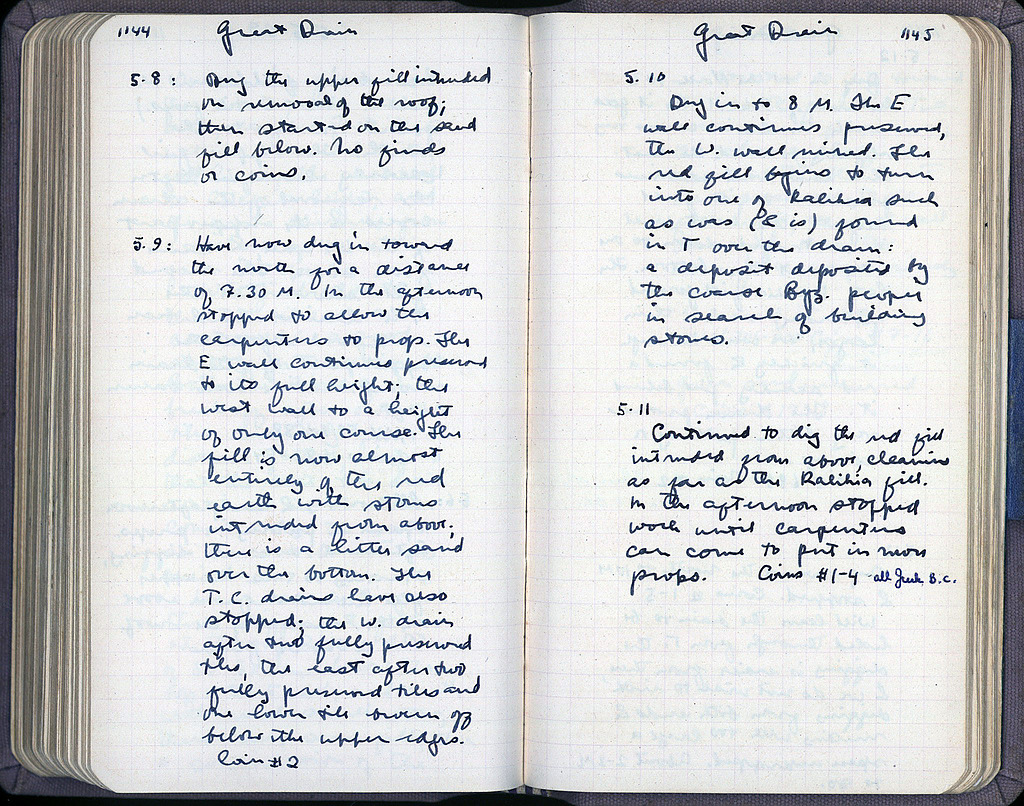 1144
Great Drain
5.8: Dug the upper fill intruded
on removal of the roof;
then started on the sand
fill below. No finds
or coins.
5.9: Have now dug in toward
the north for a distance
of 7.30 M. In the afternoon
stopped to allow the
carpenters to prop. The
E wall continues preserved
to its full height; the
west wall to a height
of only one course. The
fill is now almost
entirely of the red
earth with stones
intruded from above;
there is a little sand
over the bottom. The
T.C. drains have also
stopped; the W. drain
after two fully preserved
tiles, the east after two
fully preserved tiles and
one lower tile broken off
below the upper edges.
Coin #2
Great Drain
1145
5.10
Dug in to 8 M. The E
wall continues preserved,
the W. wall ruined. The
red fill begins to turn
into one of Kalikia such
as was (& is) found
in T over the drain:
a deposit deposited by
the coarse Byz. people
in search of building
stones.
5.11
Continued to dig the red fill
intruded from above, cleaning
as far as the Kalikia fill.
In the afternoon stopped
work until carpenters
can come to put in more
props. Coins #1-4 - all Greek B.C.